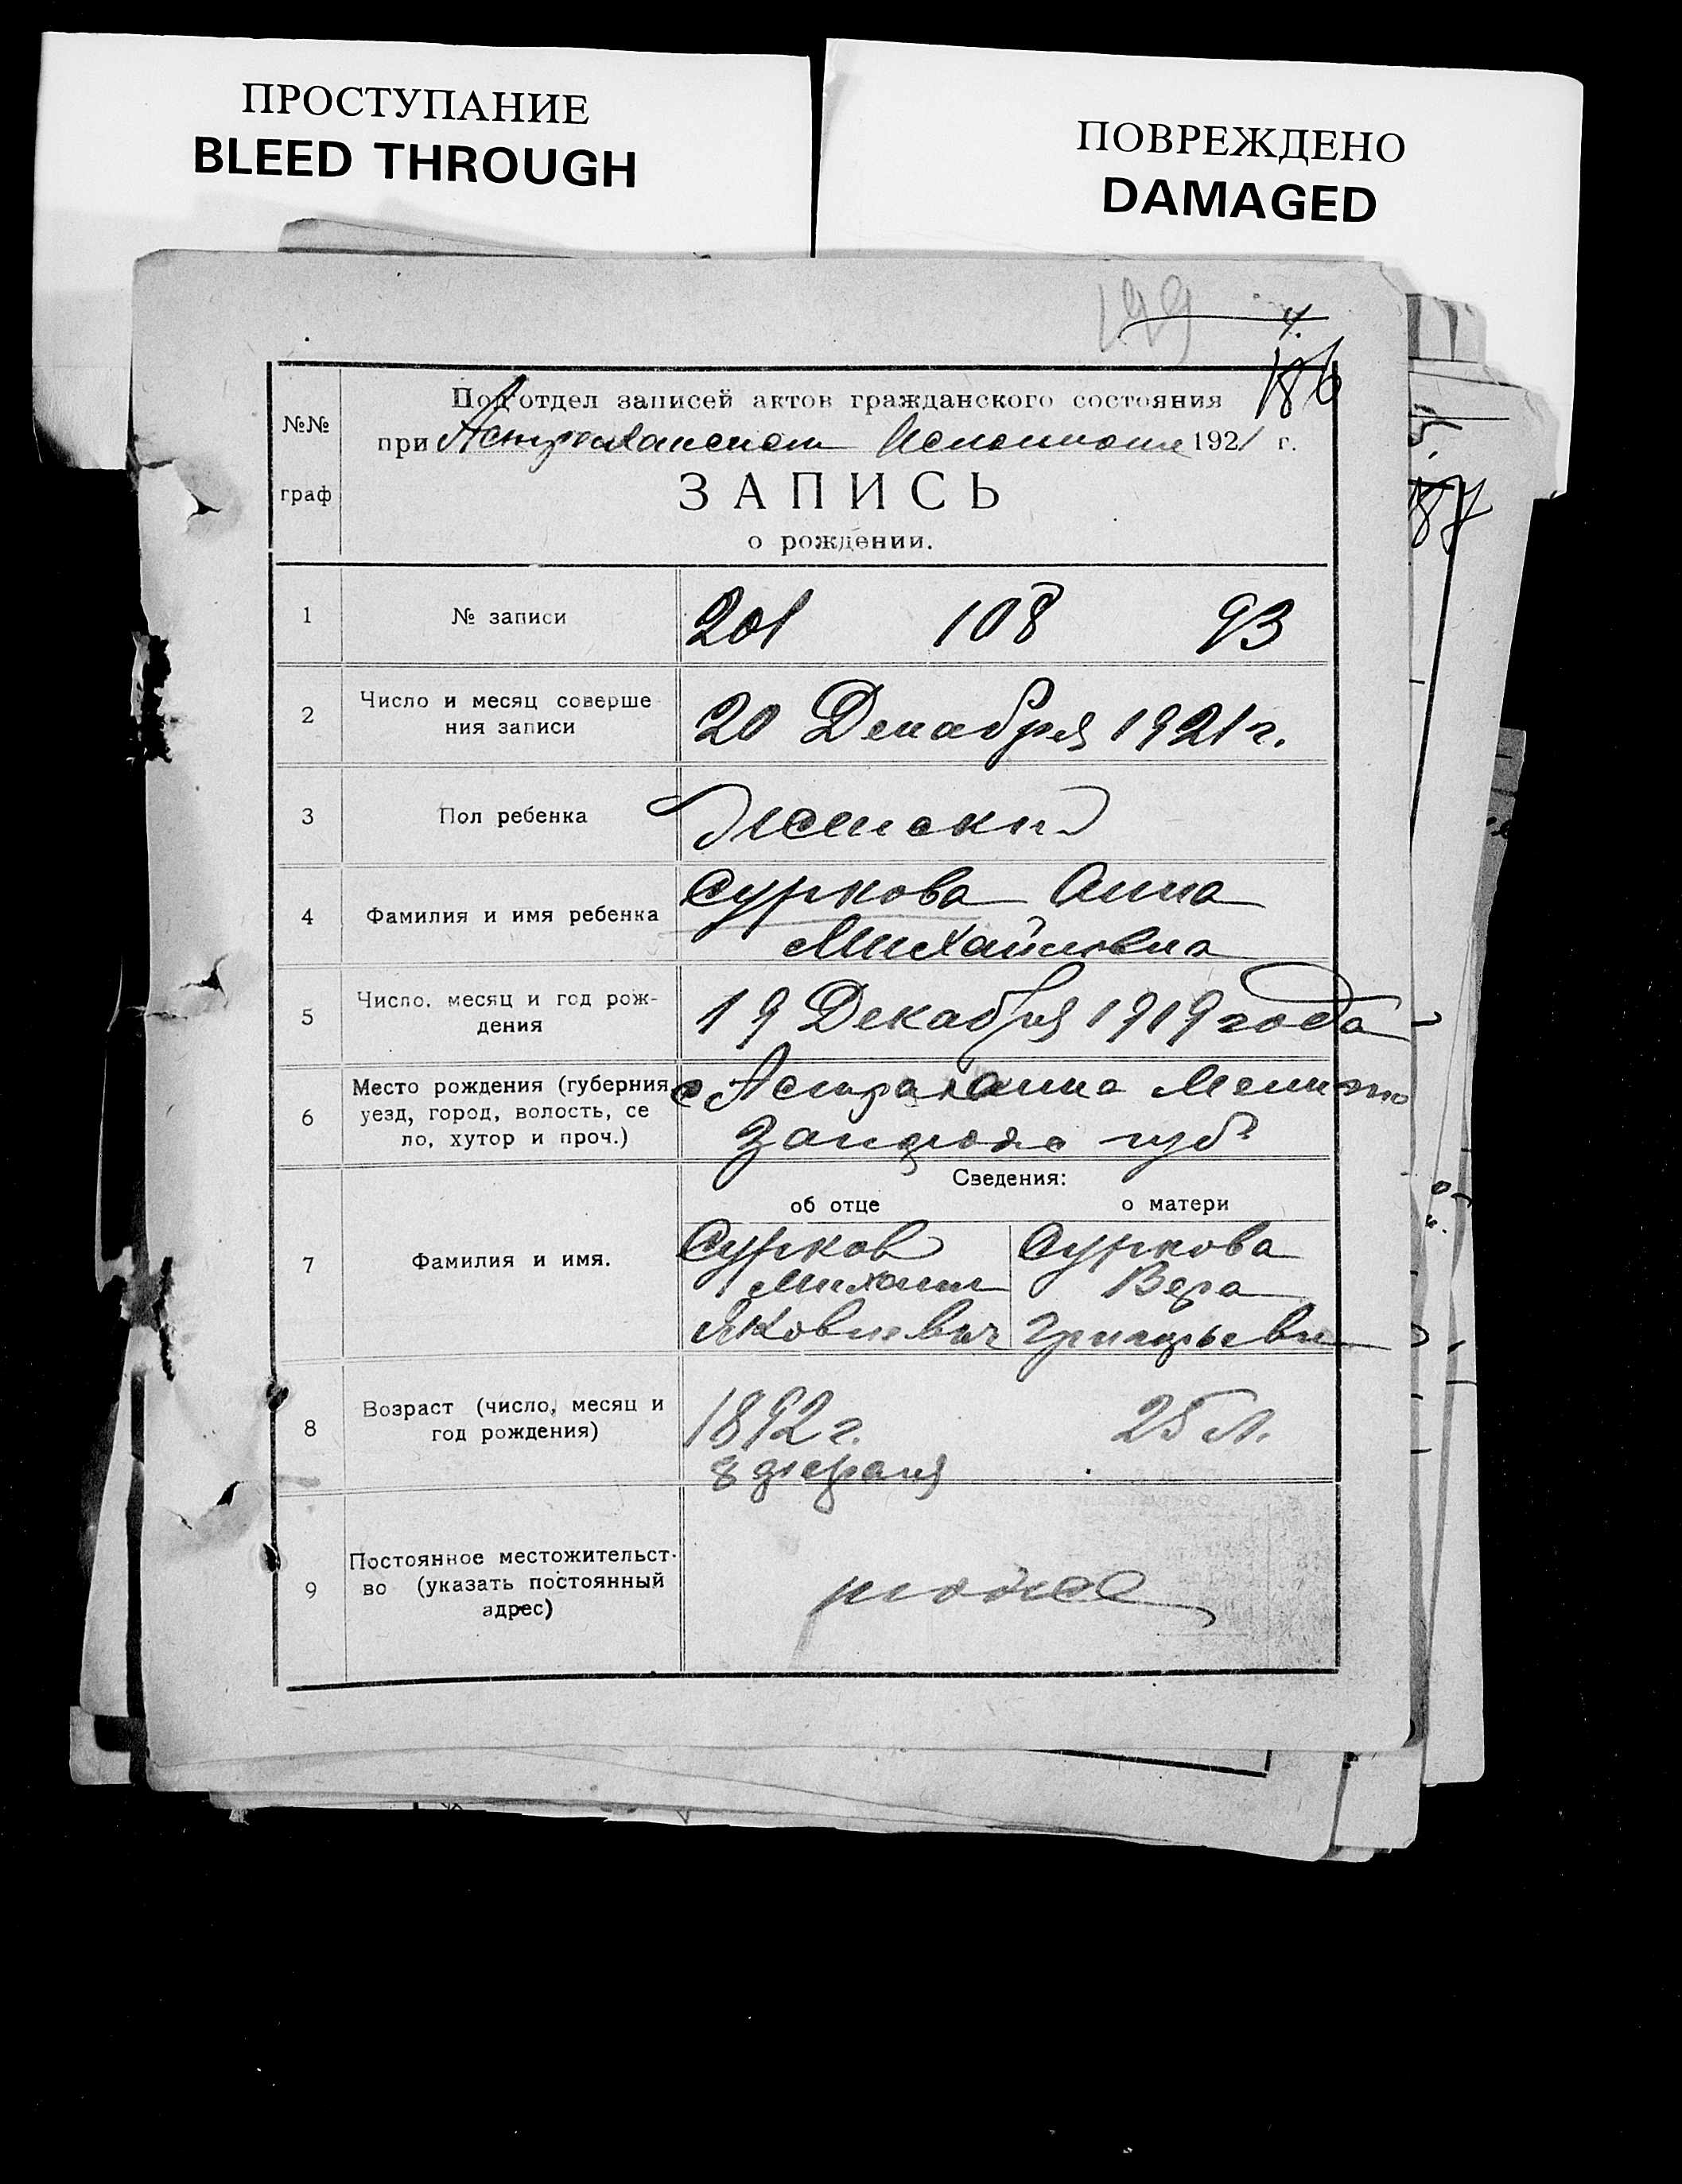 ПРОСТУПАНИЕ
BLEED THROUGH
ПОВРЕЖДЕНО
DAMAGED
199
186
187
№№
граф
Подотдел записей актов гражданского состояния
при Астраханском 1921 г.
ЗАПИСЬ
о рождении.
1
№ записи
201 108 93
2
Число и месяц соверше
ния записи
20 Декабря 1921 г.
3
Пол ребенка
Женский
4
Фамилия и имя ребенка
Суркова Анна
Михайловна
5
Число, месяц и год рож-
дения
19 Декабря 1919 года
6
Место рождения (губерния,
уезд, город, волость, се
ло, хутор и проч.)
с Астраханка
губ
Сведения:
об отце
о матери
7
Фамилия и имя.
Сурков
Михаил
Яковлевич
Суркова
Вера
Григорьевн
8
Возраст (число, месяц и
год рождения)
1892 г.
8 февраля
25 л.
9
Постоянное местожительст-
во (указать постоянный
адрес)